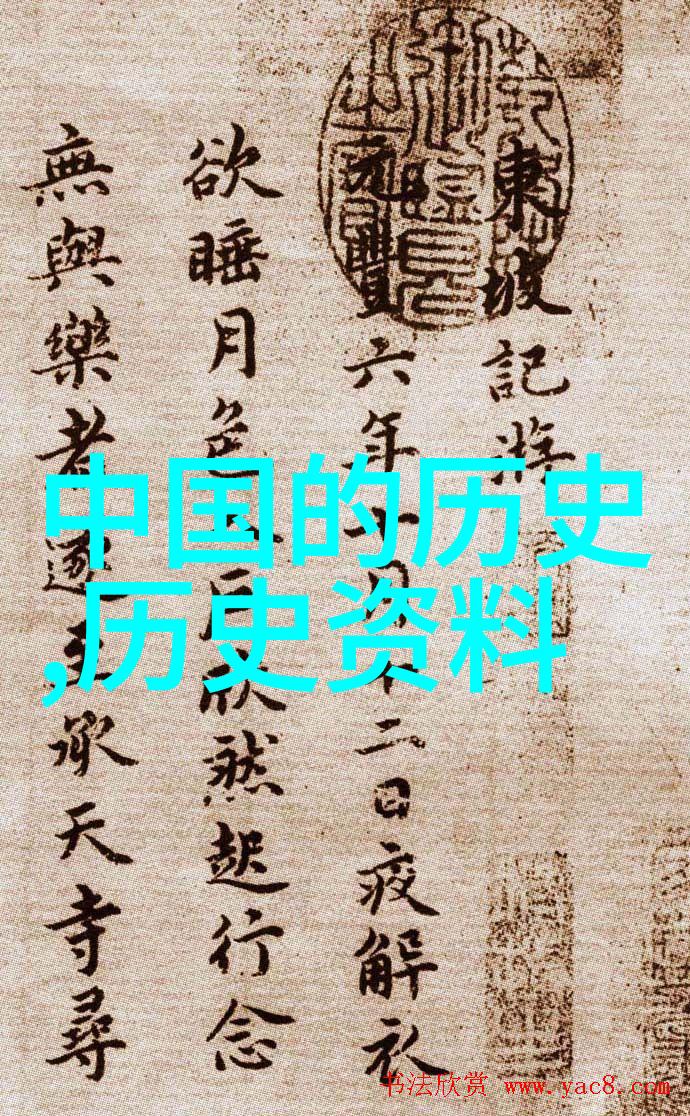 東坡記游
元豐六年十月十二日夜解衣
欲睡月色入戶欣然起行念
無與樂者遂至承天寺尋
中国的历史
,历史资料
书法欣赏 www.yac8.com